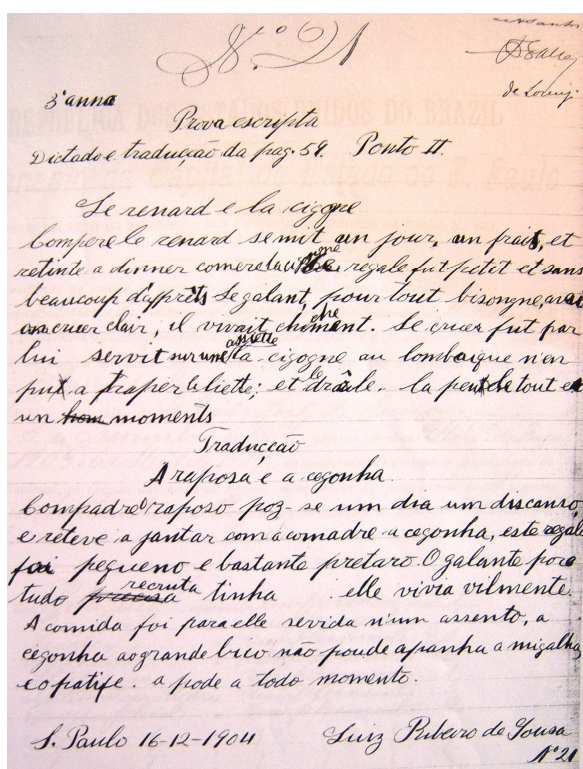 Nº 21
de Lourenço
3º anno
Prova escripta
Dictado e traducção da pag. 59. Ponto II.
Le renard e la cigogne
Compere le renard se mit un jour, un frait, et
retinte a dinner comere la regale fut petit et sans
beaucoup d'apprêts Le galant, pour tout bisongne,
cruer clair, il vivait chichement. Le cruer fut par
lui servit sur une assiette la cigogne au lombaique n'en
put a traper le liette; et le drâle. la peut de tout en
un hom moments
Traducção
A raposa e a cegonha.
Compadre raposo poz-se um dia um discanso,
e reteve a jantar com a comadre a cegonha, este regale
foi pequeno e bastante pretaro. O galante para
tudo precisa recruta tinha elle vivia vilmente.
A comida foi para elle servida n'um assento, a
cegonha ao grande bico não poude apanha a migalha
e o patife. a pode a todo momento.
S. Paulo 16-12-1904 Luiz Ribeiro de Sousa
Nº 21